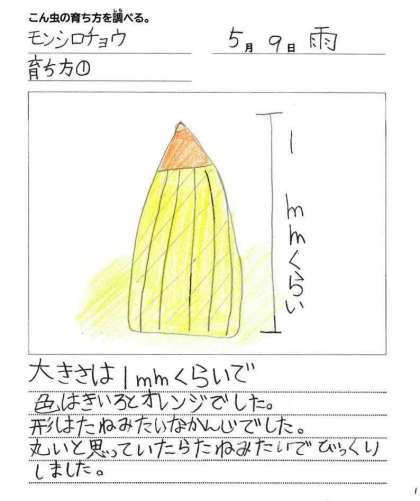 こん虫の育ち方を調べる。
モンシロチョウ
5月9日 雨
育ち方①
1mmくらい
大きさは1mmくらいで
色はきいろとオレンジでした。
形はたねみたいなかんじでした。
丸いと思っていたらたねみたいでびっくり
しました。